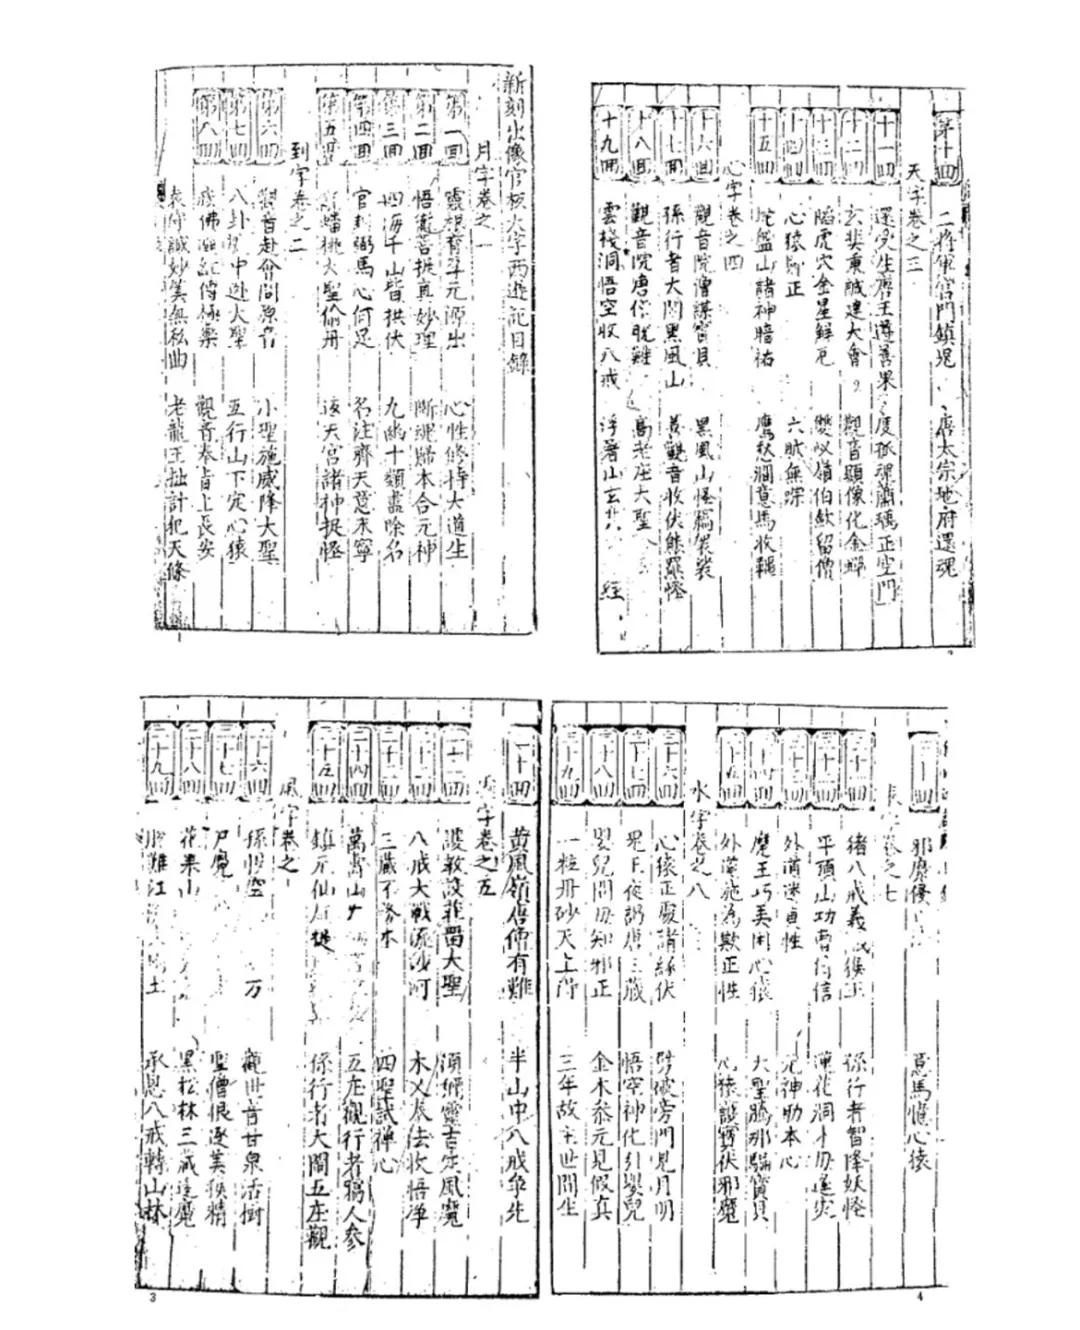 新刻出像官板大字西遊記目錄
月字卷之一
第一回 靈根育孕元源出 心性修持大道生
第二回 悟徹菩提真妙理 斷魂歸本合元神
第三回 四海千山皆拱伏 九幽十類盡除名
第四回 官封弼馬心何足 名注齊天意未寧
第五回 蟠桃大聖偷丹 返天宮諸神捉怪
到字卷之二
第六回 觀音赴會問原音 小聖施威降大聖
第七回 八卦中逃大聖 五行山下定心猿
第八回 我佛傳極樂 觀音奉旨上長安
袁守誠妙算無私曲 老龍王拙計犯天條
第十回 二將軍宮門鎮鬼 唐太宗地府還魂
天字卷之三
十一回 還受生唐王遵善果 度孤魂蕭瑀正空門
十二回 玄奘秉誠建大會 觀音顯像化金蟬
十三回 陷虎穴金星解厄 雙叉嶺伯欽留僧
十四回 心猿歸正 六賊無踪
十五回 蛇盤山諸神暗祐 鷹愁澗意馬收韁
心字卷之四
十六回 觀音院僧謀寶貝 黑風山怪竊袈裟
十七回 孫行者大鬧黑風山 觀音收伏熊羆怪
十八回 觀音院唐僧脫難 高老庄大聖
十九回 雲棧洞悟空收八戒 浮屠山玄 經
二十回 黃風嶺唐僧有難 半山中八戒爭先
字卷之五
二十一回 護教設莊留大聖 須彌靈吉定風魔
二十二回 八戒大戰流沙河 木叉奉法收悟淨
二十三回 三藏不忘本 四聖試禪心
二十四回 萬壽山 五庄觀行者竊人參
二十五回 鎮元仙 捉 孫行者大鬧五庄觀
風字卷之
二十六回 孫悟空 方 觀世音甘泉活樹
二十七回 尸魔 聖僧恨逐美猴精
二十八回 花果山 黑松林三藏逢魔
二十九回 脫難江 土 承恩八戒轉山林
三十回 邪魔侵 意馬憶心猿
卷之七
三十一回 猪八戒義 猴王 孫行者智降妖怪
三十二回 平頂山功曹 信 蓮花洞木母逢災
三十三回 外道迷真性 元神助本心
三十四回 魔王巧美困心猿 大聖騰那騙寶貝
三十五回 外道施為欺正性 心猿設寶伏邪魔
水字卷之八
三十六回 心猿正處諸緣伏 劈破旁門見月明
三十七回 鬼王夜謁唐三藏 悟空神化引嬰兒
三十八回 嬰兒問母知邪正 金木參元見假真
三十九回 一粒丹砂天上得 三年故主世間生
2
3
4